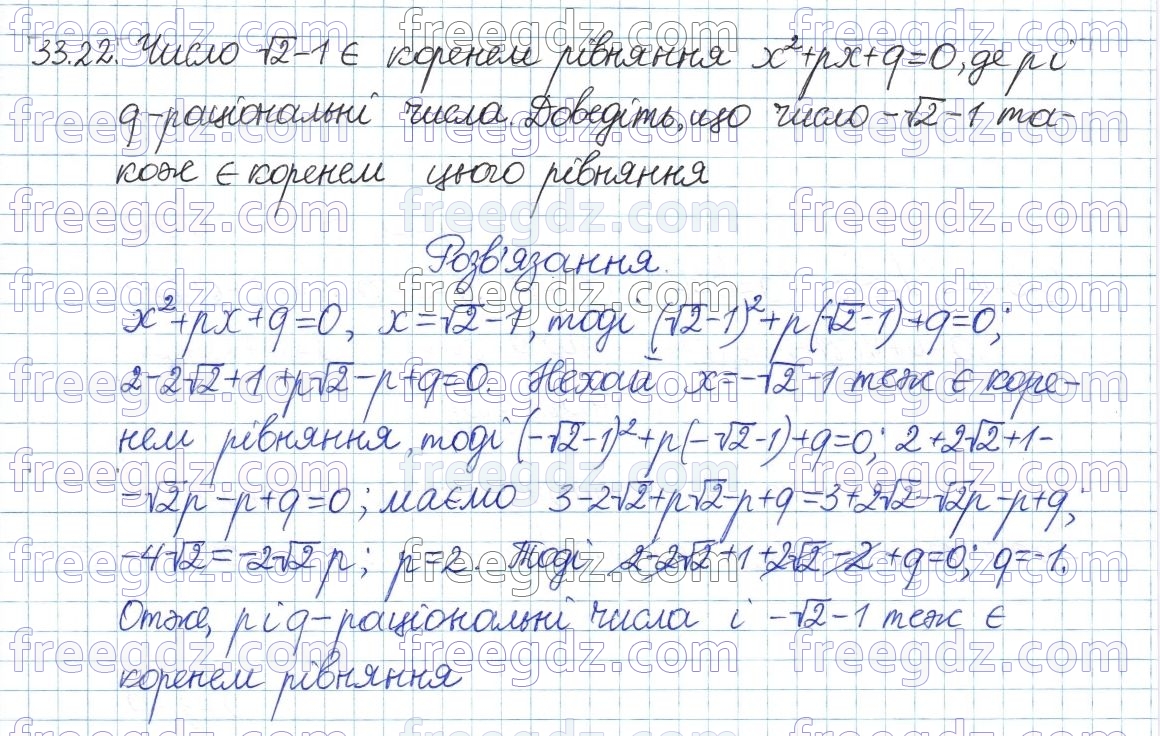 33.22. Число √2-1 є коренем рівняння x²+px+q=0, де p і
q-раціональні числа. Доведіть, що число -√2-1 та-
кож є коренем цього рівняння
Розв'язання.
x²+px+q=0, x=√2-1, тоді (√2-1)²+p(√2-1)+q=0;
2-2√2+1+p√2-p+q=0. Нехай x=-√2-1 теж є коре-
нем рівняння, тоді (-√2-1)²+p(-√2-1)+q=0; 2+2√2+1-
-√2p-p+q=0; маємо 3-2√2+p√2-p+q=3+2√2-√2p-p+q;
-4√2=-2√2p; p=2. Тоді 2-2√2+1+2√2-2+q=0; q=-1.
Отже, p і q-раціональні числа і -√2-1 теж є
коренем рівняння
freegdz.com freegdz.com freegdz.com